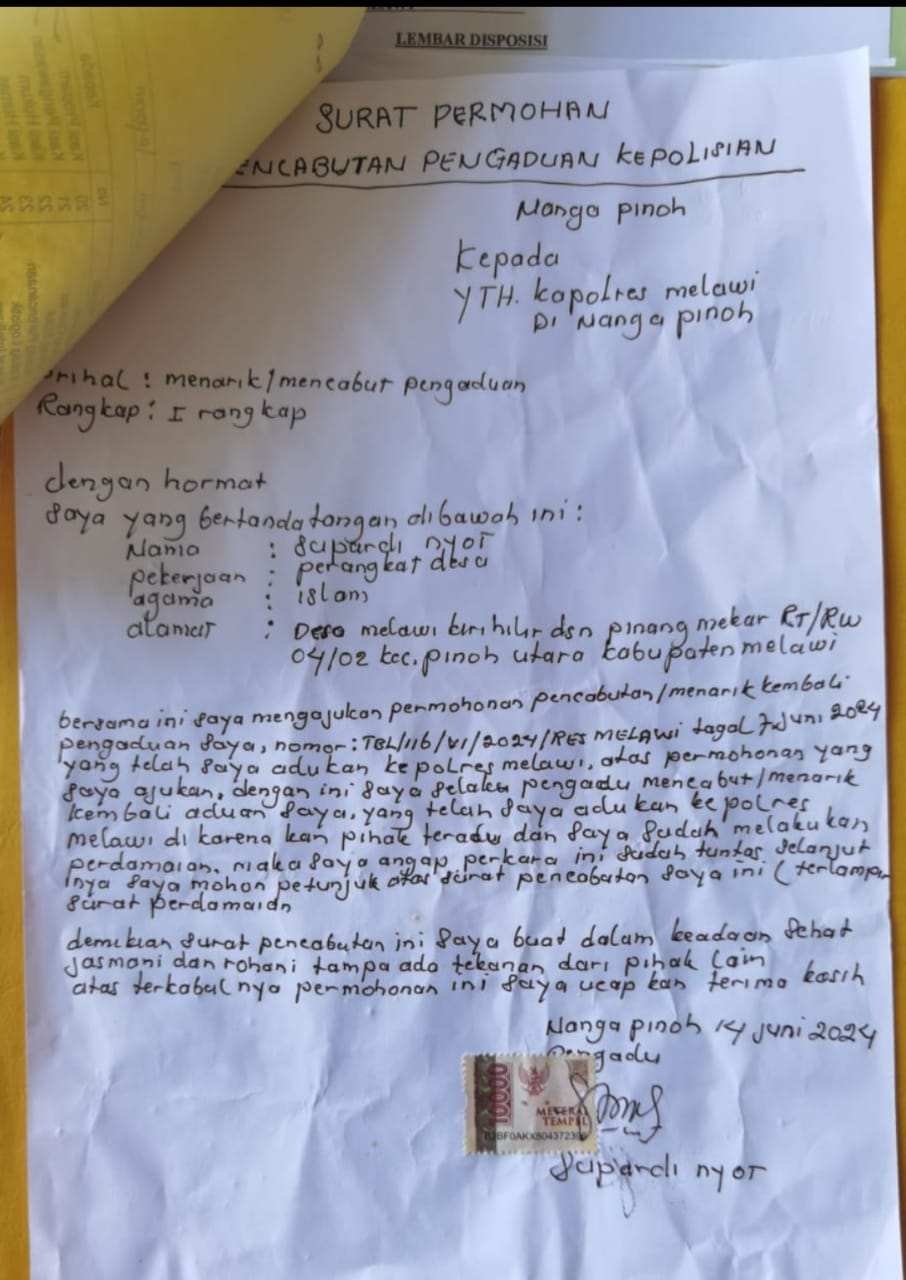 LEMBAR DISPOSISI
SURAT PERMOHAN
ENCABUTAN PENGADUAN KEPOLISIAN
Nanga pinoh
Kepada
YTH. kapolres melawi
Di Nanga pinoh
rihal : menarik/mencabut pengaduan
Rangkap : I rangkap
dengan hormat
Saya yang bertanda tangan dibawah ini :
Nama : Supardi nyot
pekerjaan : perangkat desa
agama : islam
alamat : Desa melawi kiri hilir dsn pinang mekar RT/RW
04/02 kec. pinoh utara kabupaten melawi
bersama ini saya mengajukan permohonan pencabutan/menarik kembali
pengaduan saya, nomor : TBL/116/VI/2024/RES MELAWI tagal 7 Juni 2024
yang telah saya adukan ke polres melawi, atas permohonan yang
saya ajukan, dengan ini saya selaku pengadu mencabut/menarik
kembali aduan saya, yang telah saya adukan ke polres
melawi di karena kan pihak teradu dan saya sudah melakukan
perdamaian, maka saya angap perkara ini sudah tuntas selanjut
inya saya mohon petunjuk atas surat pencabutan saya ini ( terlampir
surat perdamaidn
demikian surat pencabutan ini saya buat dalam keadaan sehat
jasmani dan rohani tampa ada tekanan dari pihak lain
atas terkabulnya permohonan ini saya ucap kan terima kasih
Nanga pinoh 14 juni 2024
Pengadu
10000
METERAI
TEMPEL
Supardi nyot